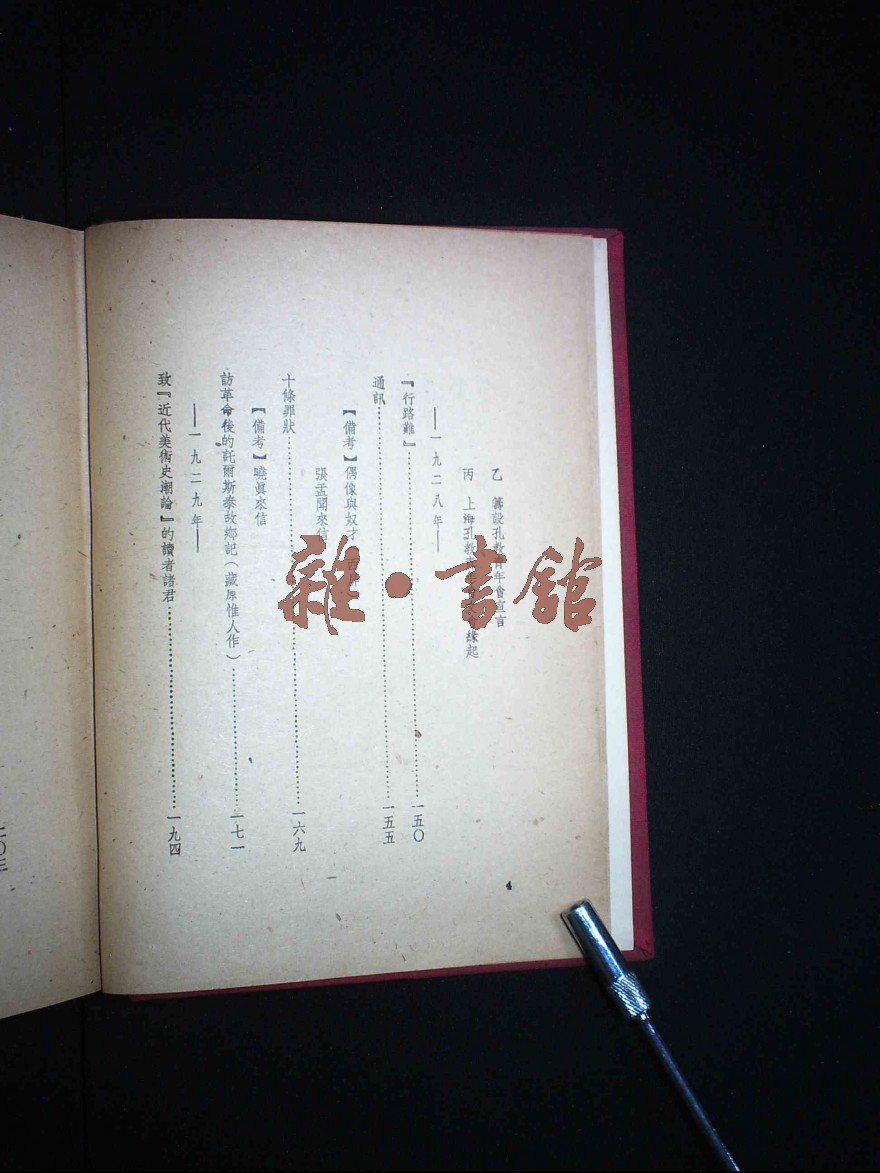 乙 籌設孔教青年會宣言
丙 上海孔教青年會 緣起
——一九二八年——
『行路難』……一五〇
通訊……一五五
【備考】偶像與奴才
張孟聞來信
十條罪狀……一六九
【備考】曉眞來信
訪革命後的託爾斯泰故鄉記(藏原惟人作)……一七一
——一九二九年——
致『近代美術史潮論』的讀者諸君……一九四
4
雜·書館